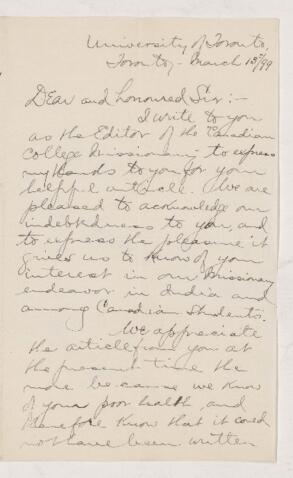 University of Toronto,
Toronto, - March 13th/99
Dear and honoured Sir:-
I write to you
as the Editor of the Canadian
College Missionary to express
my thanks to you for your
helpful article. We are
pleased to acknowledge our
indebtedness to you, and
to express the pleasure it
gives us to know of your
interest in our Missionary
endeavor in India and
among Canadian Students.
We appreciate
the article from you at
the present time the
more because we know
of your poor health, and
therefore know that it could
not have been written